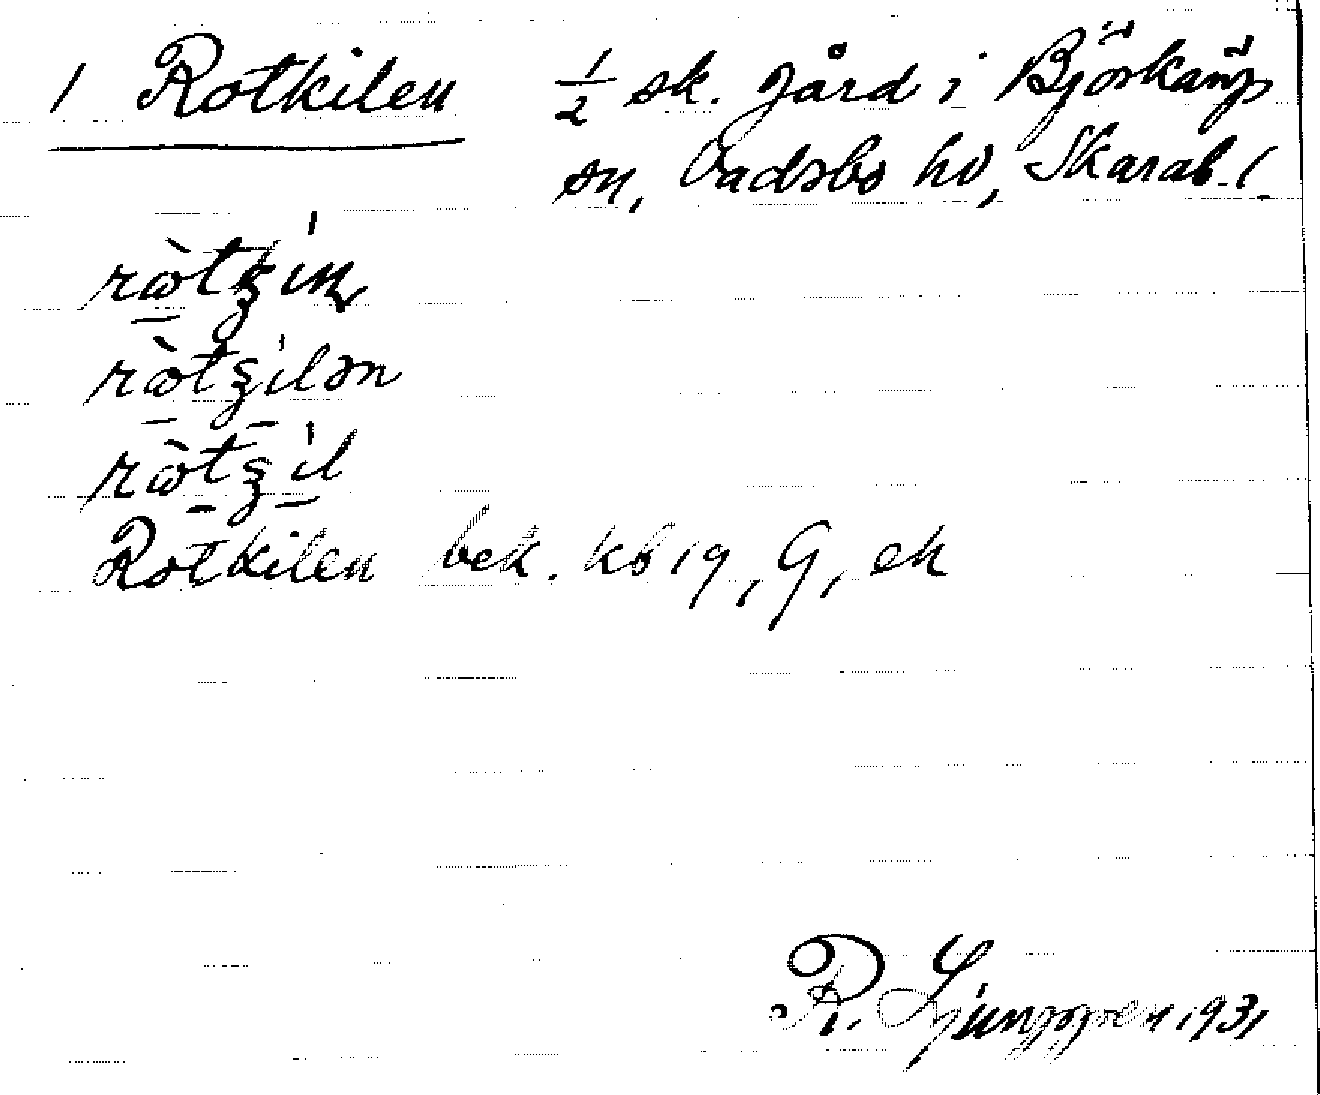 1 Rotkilen ½ sk. gård i Björkängs
sn, Vadsbo hd, Skarab. l.
ròtʒin
ròtʒilən
ròtʒil
Rotkilen bek. kb 19, G, ek
R. Ljunggren 1931